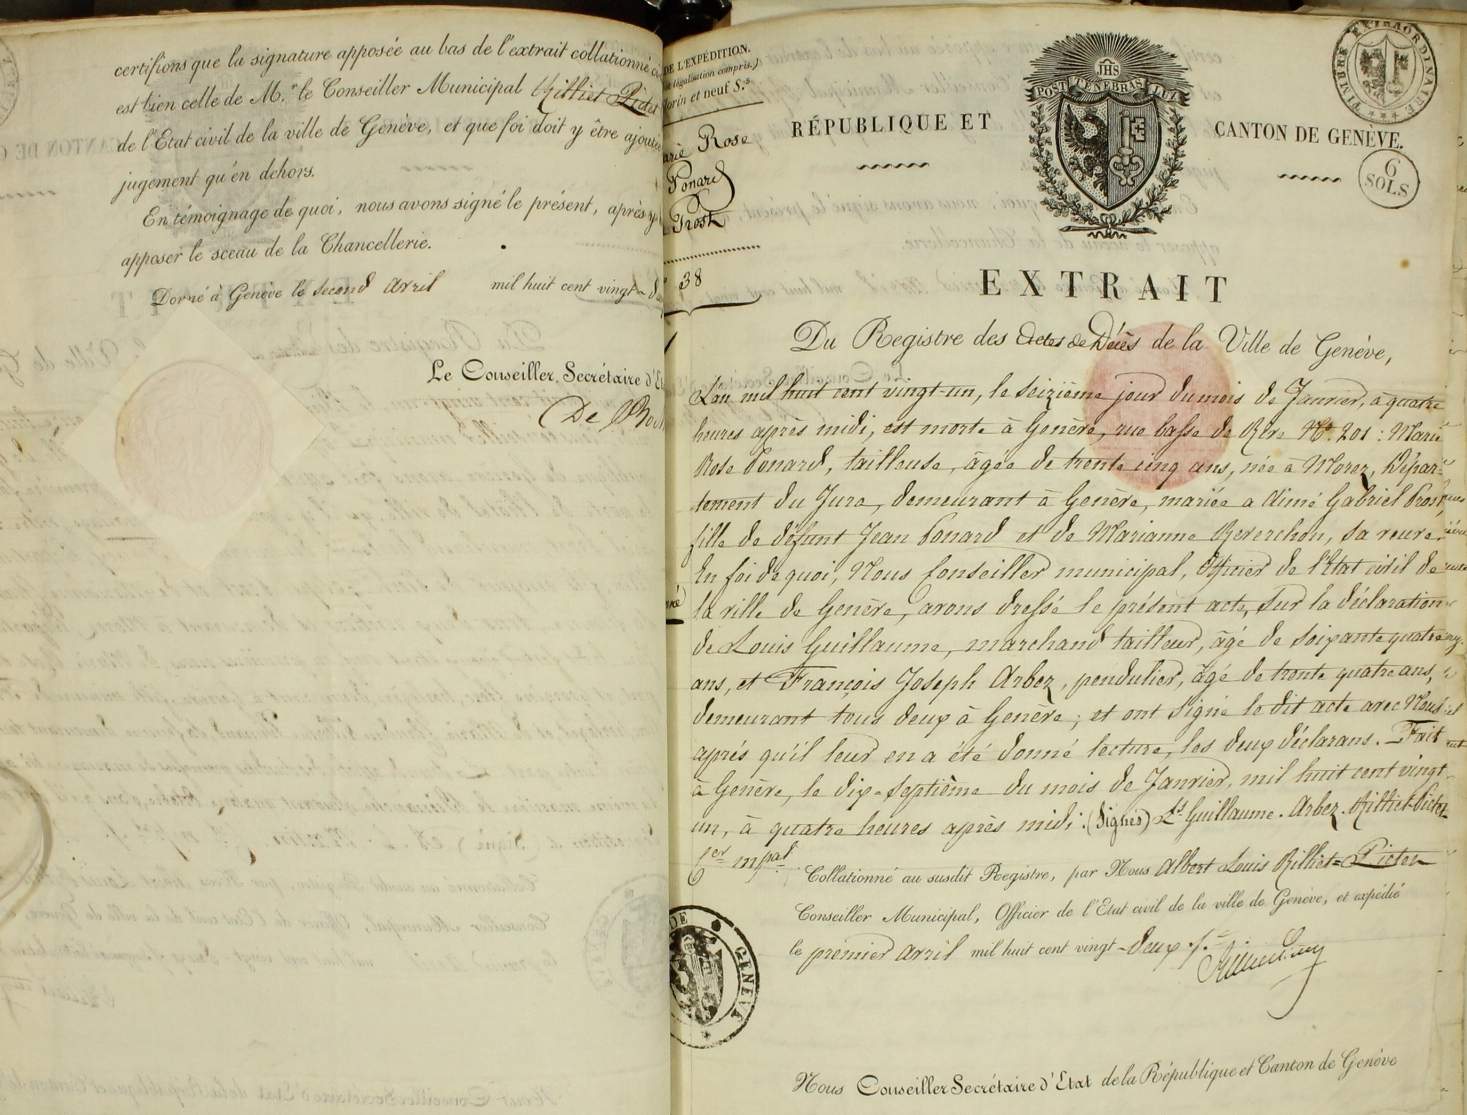 certifions que la signature apposée au bas de l'extrait collationné
est bien celle de M.r le Conseiller Municipal Rilliet-Pictet
de l'Etat civil de la ville de Genève, et que foi doit y être ajoutée
jugement qu'en dehors.
En témoignage de quoi, nous avons signé le présent, après y
apposer le sceau de la Chancellerie.
Donné à Genève le second Avril mil huit cent vingt-d
Le Conseiller, Secrétaire d'Et
De
DE L'EXPÉDITION.
(légalisation comprise.)
florin et neuf S.s
arie Rose
Ponard
Prost
38
RÉPUBLIQUE ET
CANTON DE GENÈVE.
JHS
POST TENEBRAS LUX
TIMBRE EXTRAORDINAIRE
6
SOLS
EXTRAIT
Du Registre des Actes de Décès de la Ville de Genève,
L'an mil huit cent vingt-un, le seizième jour du mois de Janvier, à quatre
heures après midi, est morte à Genève, rue basse de Rive No. 201 : Marie
Rose Ponard, tailleuse, âgée de trente cinq ans, née à Morez, Dépar-
tement du Jura, demeurant à Genève, mariée a Aimé Gabriel Prost,
fille de défunt Jean Ponard et de Marianne Reverchon, sa veuve.
En foi de quoi, Nous Conseiller municipal, Officier de l'Etat civil de
la ville de Genève, avons dressé le présent acte, sur la déclaration
de Louis Guillaume, marchand tailleur, âgé de soixante quatre
ans, et François Joseph Arbez, pendulier, âgé de trente quatre ans,
demeurant tous deux à Genève ; et ont signé le dit acte avec Nous
après qu'il leur en a été donné lecture, les deux déclarans. Fait
à Genève, le dix-septième du mois de Janvier, mil huit cent vingt
un, à quatre heures après midi. (Signés) Ls Guillaume. Arbez. Rilliet-Pictet
Cer mpal.
Collationné au susdit Registre, par Nous Albert Louis Rilliet=Pictet
Conseiller Municipal, Officier de l'Etat civil de la ville de Genève, et expédié
le premier Avril mil huit cent vingt-deux
DE GENÈVE
Nous Conseiller Secrétaire d'Etat de la République et Canton de Genève